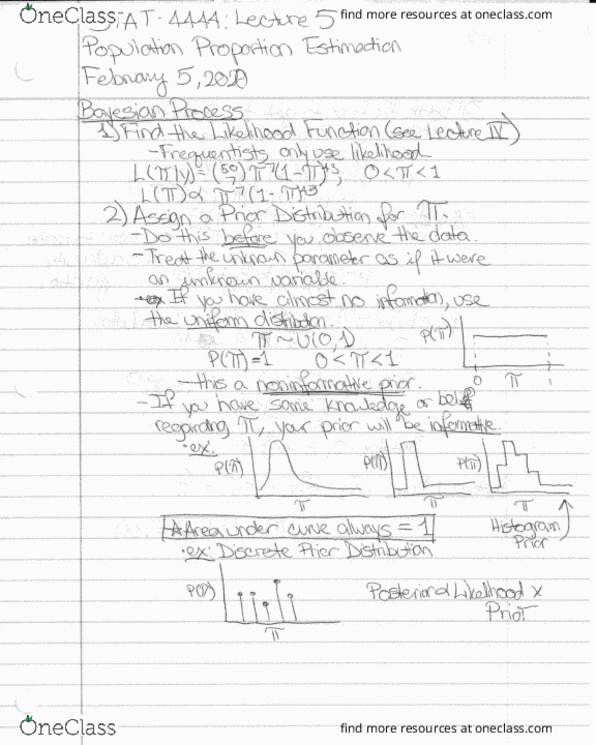 OneClass
find more resources at oneclass.com
STAT-4444: Lecture 5
Population Proportion Estimation
February 5, 2020
Bayesian Process
1) Find the Likelihood Function (see Lecture IV)
- Frequentists only use likelihood
L(π|y) = (50 7) π^7 (1-π)^43, 0<π<1
L(π) ∝ π^7 (1-π)^43
2) Assign a Prior Distribution for π.
- Do this before you observe the data.
- Treat the unknown parameter as if it were
an unknown variable.
- If you have almost no information, use
the uniform distribution.
π ~ U(0,1)
P(π)=1 0<π<1
P(π)
0 π 1
- this a noninformative prior.
- If you have some knowledge or belief
regarding π, your prior will be informative.
• ex.
P(π) P(π) P(π)
π π π
★Area under curve always = 1
Histogram
Prior
• ex: Discrete Prior Distribution
P(π)
π
Posterior α Likelihood x
Prior
OneClass
find more resources at oneclass.com